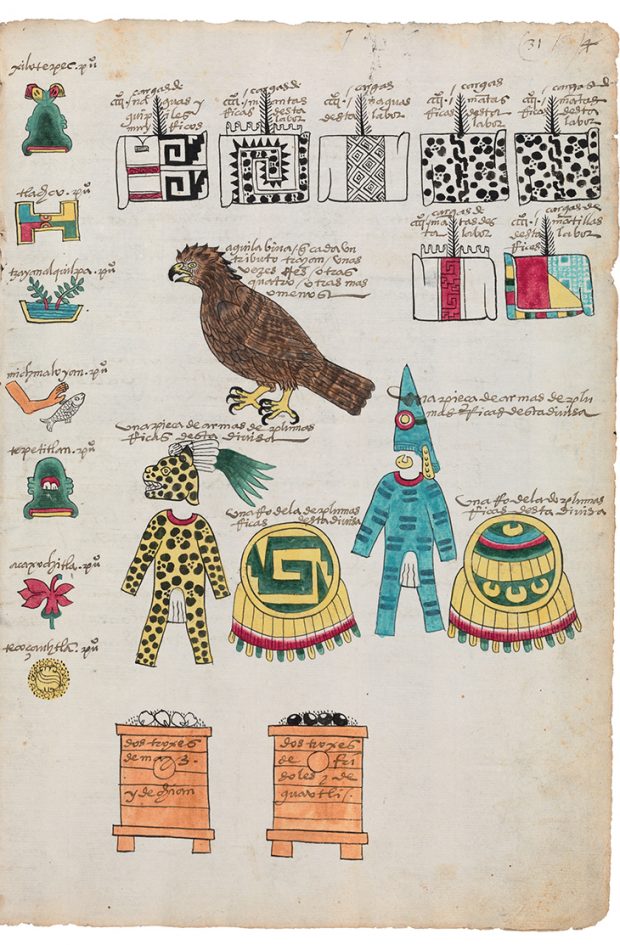 (31
xilotepec. puº
tlachco. puº
tzayanalquilpa. puº
michmaloyan. puº
tepetitlan. puº
acaxochitla. puº
tecoçauhtla. puº
cargas de
naguas y
guipiles
muy Ricos
cargas de
mantas
Ricas desta
labor
cargas
naguas
desta labor
cargas
mãtas
Ricas destª
labor
cargas de
mãtas
Ricas desta
labor
cargas de
mantas des
ta labor
cargas de
mãtillas
desta
Ricas labor
aguila biua / q̃ cada un
tributo trayan / unas
vezes tres / otras
quatro / otras mas
o menos
una pieça de armas de plu
mas Ricas desta diuisa
una pieça de armas de plumas
Ricas desta diuisa
una Rodela de plumas
Ricas desta diuisa
una Rodela de plumas
Ricas desta diuisa
dos troxes
de mayz.
y de chian
dos troxes
de fri
soles y de
guavtli /.